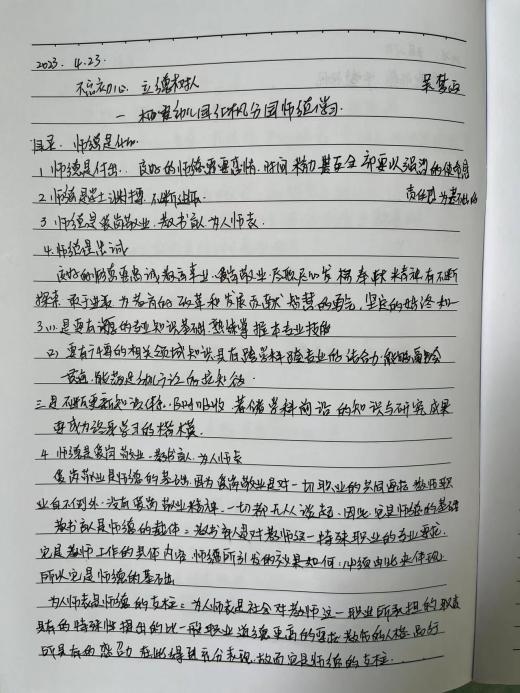 2023. 4.23.
不忘初心 立德树人 吴梦
— 幼儿园红枫分园师德学习.
目录: 师德是什么
1. 师德是付出. 良好的师德需要高情. 时间 精力 甚至全部 要以强烈的使命感
2. 师德是学士渊博. 不断进取. 责任感为基础的
3. 师德是爱岗敬业. 教书育人 为人师表.
4. 师德是忠诚
良好的师德要忠诚教育事业. 爱岗敬业. 尽职尽心 发扬奉献精神 有不断
探索. 敢于进取 为教育的改革和发展贡献 智慧的勇气, 坚定的始终如一
3 (1) 是要有的专业知识基础. 熟练掌握本专业技能
(2) 要有广博的相关领域知识具有跨学科跨专业的结合力. 能够
三是不断更新知识体系. 及时吸收 著储学科前沿的知识与研究成果
要成为终身学习的楷模.
4 师德是爱岗敬业. 教书育人. 为人师表
爱岗敬业是师德的基础. 因为爱岗敬业是对一切职业的共同要求 教师职
业自不例外. 没有爱岗敬业精神. 一切都无从谈起. 因此 它是师德的基础
教书育人是师德的载体: 教书育人是对教师这一特殊职业的专业要求.
它是教师工作的具体内容. 师德所引发的效果如何, 必须由此来体现.
所以它是师德的基础
为人师表是师德的支柱: 为人师表是社会对教师这一职业所承担的职责
具有的特殊性提出的比一般职业道德更高的要求 教师的人格品行
所具有的感召力 在此得到充分表现. 故而它是师德的支柱.